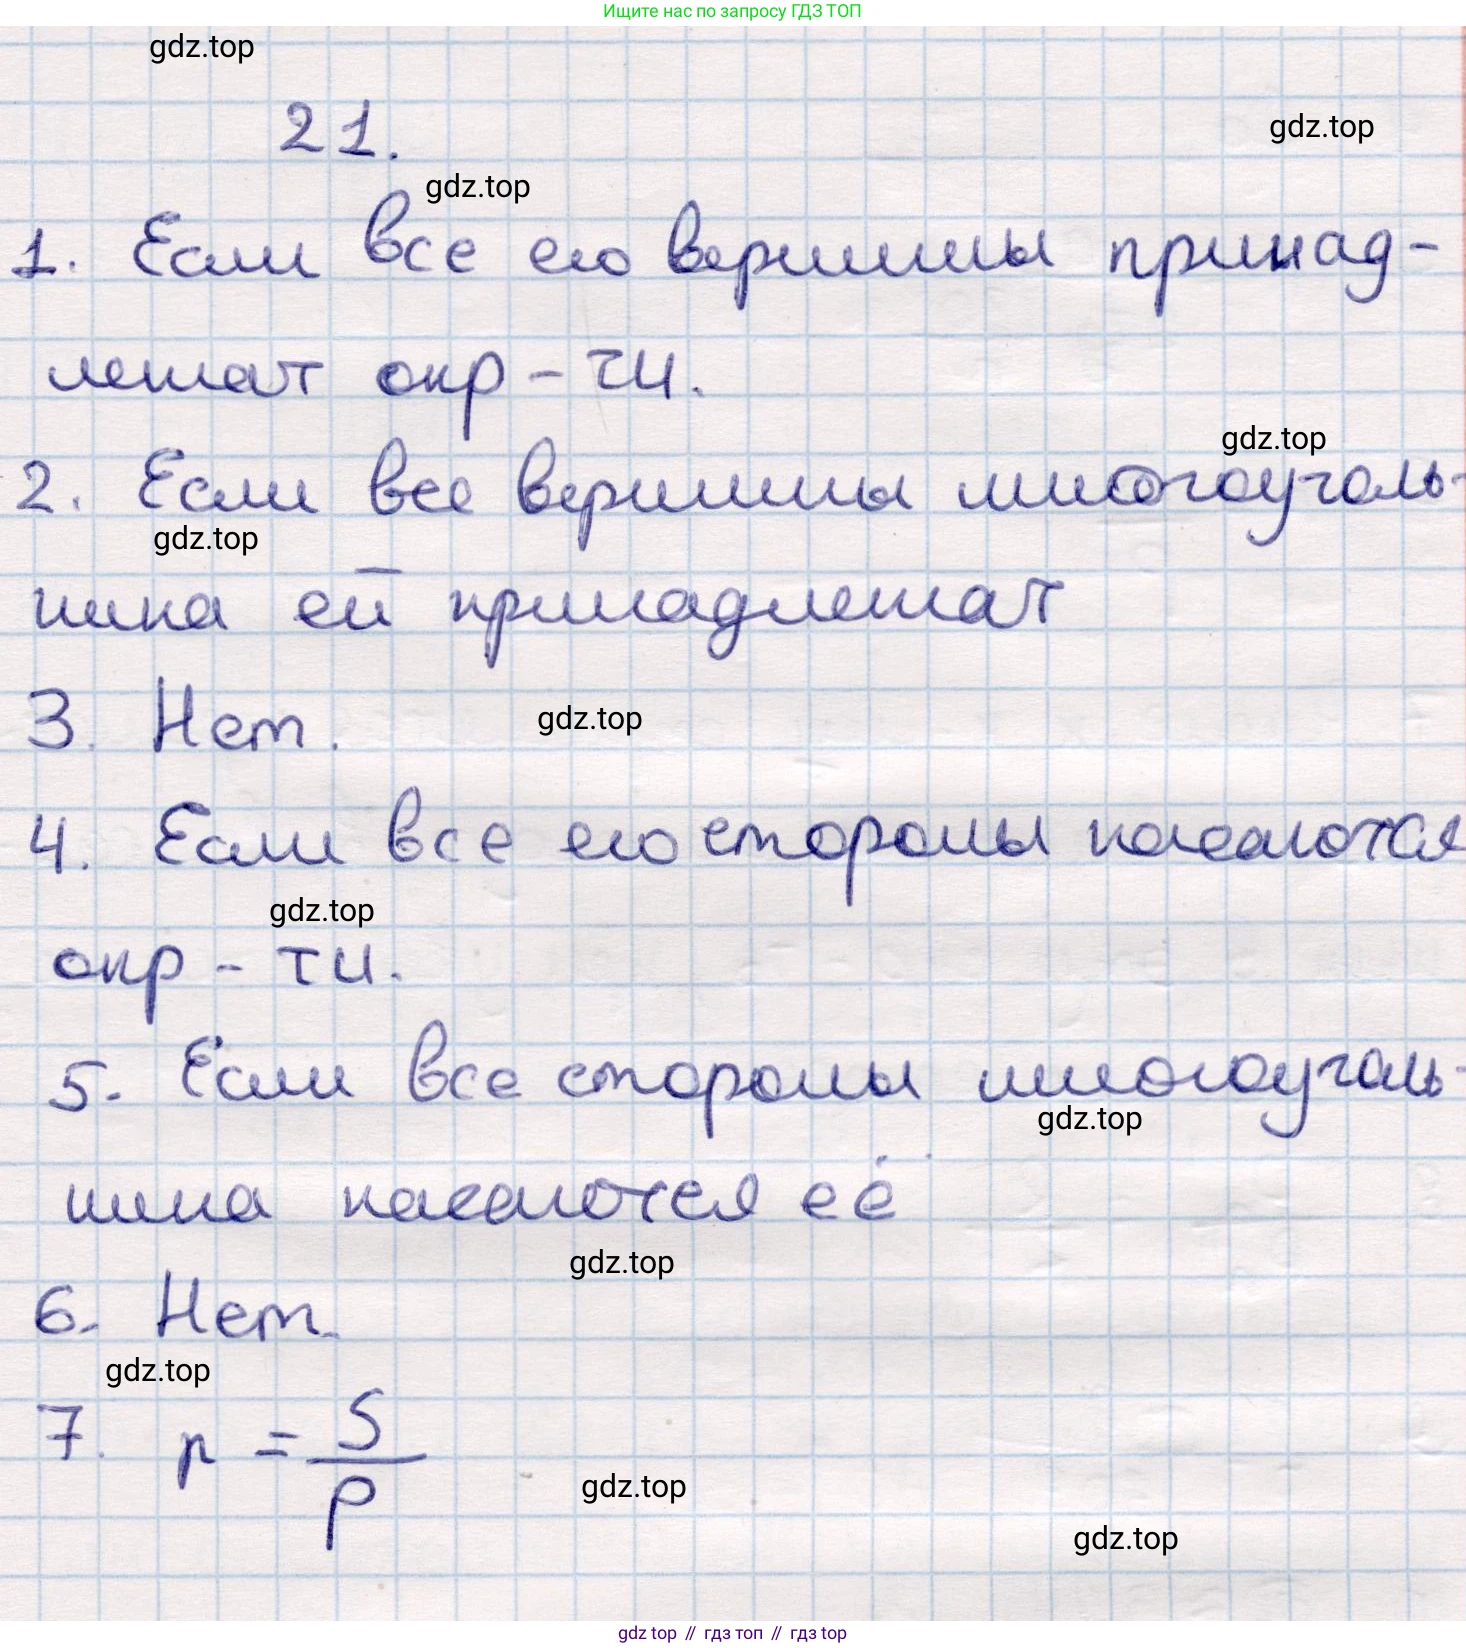 Ищите нас по запросу ГДЗ ТОП
gdz.top
21.
gdz.top
gdz.top
1. Если все его вершины принад-
лежат окр-ти.
gdz.top
2. Если все вершины многоуголь-
gdz.top
ника ей принадлежат
3. Нет.
gdz.top
4. Если все его стороны касаются
gdz.top
окр-ти.
5. Если все стороны многоуголь-
gdz.top
ника касаются её
gdz.top
6. Нет.
gdz.top
7. r = S/p
gdz.top
gdz.top
gdz top // гдз топ // гдз top